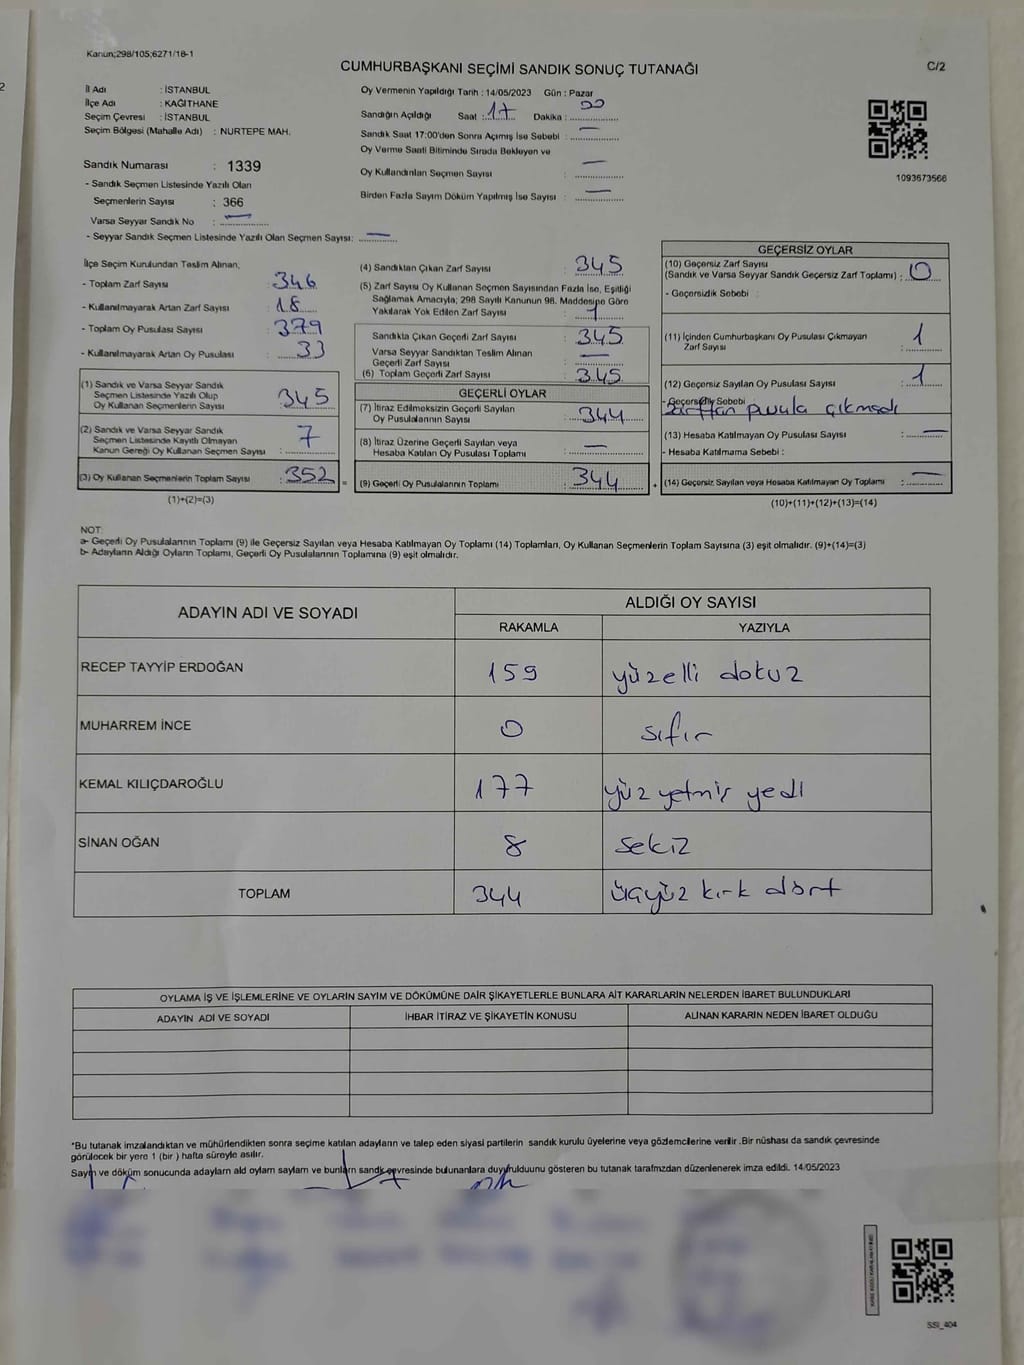 Kanun;298/105;6271/18-1
CUMHURBAŞKANI SEÇİMİ SANDIK SONUÇ TUTANAĞI
C/2
İl Adı : İSTANBUL
İlçe Adı : KAĞITHANE
Seçim Çevresi : İSTANBUL
Seçim Bölgesi (Mahalle Adı) : NURTEPE MAH.
Sandık Numarası : 1339
- Sandık Seçmen Listesinde Yazılı Olan
Seçmenlerin Sayısı : 366
Varsa Seyyar Sandık No : —
- Seyyar Sandık Seçmen Listesinde Yazılı Olan Seçmen Sayısı: —
Oy Vermenin Yapıldığı Tarih : 14/05/2023 Gün : Pazar
Sandığın Açıldığı Saat : 17 Dakika : 00
Sandık Saat 17:00'den Sonra Açımış İse Sebebi : —
Oy Verme Saati Bitiminde Sırada Bekleyen ve
Oy Kullandırılan Seçmen Sayısı : —
Birden Fazla Sayım Döküm Yapılmış İse Sayısı : —
1093673566
İlçe Seçim Kurulundan Teslim Alınan;
- Toplam Zarf Sayısı : 346
- Kullanılmayarak Artan Zarf Sayısı : 18
- Toplam Oy Pusulası Sayısı : 379
- Kullanılmayarak Artan Oy Pusulası : 33
(1) Sandık ve Varsa Seyyar Sandık
Seçmen Listesinde Yazılı Olup
Oy Kullanan Seçmenlerin Sayısı : 345
(2) Sandık ve Varsa Seyyar Sandık
Seçmen Listesinde Kayıtlı Olmayan
Kanun Gereği Oy Kullanan Seçmen Sayısı : 7
(3) Oy Kullanan Seçmenlerin Toplam Sayısı : 352 =
(1)+(2)=(3)
(4) Sandıktan Çıkan Zarf Sayısı : 345
(5) Zarf Sayısı Oy Kullanan Seçmen Sayısından Fazla İse, Eşitliği
Sağlamak Amacıyla; 298 Sayılı Kanunun 98. Maddesine Göre
Yakılarak Yok Edilen Zarf Sayısı : 1
Sandıkta Çıkan Geçerli Zarf Sayısı : 345
Varsa Seyyar Sandıktan Teslim Alınan
Geçerli Zarf Sayısı : —
(6) Toplam Geçerli Zarf Sayısı : 345
GEÇERLİ OYLAR
(7) İtiraz Edilmeksizin Geçerli Sayılan
Oy Pusulalarının Sayısı : 344
(8) İtiraz Üzerine Geçerli Sayılan veya
Hesaba Katılan Oy Pusulası Toplamı : —
(9) Geçerli Oy Pusulalarının Toplamı : 344 +
GEÇERSİZ OYLAR
(10) Geçersiz Zarf Sayısı
(Sandık ve Varsa Seyyar Sandık Geçersiz Zarf Toplamı) : 0
- Geçersizlik Sebebi :
(11) İçinden Cumhurbaşkanı Oy Pusulası Çıkmayan
Zarf Sayısı : 1
(12) Geçersiz Sayılan Oy Pusulası Sayısı : 1
- Geçersizlik Sebebi
zarftan pusula çıkmadı
(13) Hesaba Katılmayan Oy Pusulası Sayısı : —
- Hesaba Katılmama Sebebi :
(14) Geçersiz Sayılan veya Hesaba Katılmayan Oy Toplamı : —
(10)+(11)+(12)+(13)=(14)
NOT:
a- Geçerli Oy Pusulalarının Toplamı (9) ile Geçersiz Sayılan veya Hesaba Katılmayan Oy Toplamı (14) Toplamları, Oy Kullanan Seçmenlerin Toplam Sayısına (3) eşit olmalıdır. (9)+(14)=(3)
b- Adayların Aldığı Oyların Toplamı, Geçerli Oy Pusulalarının Toplamına (9) eşit olmalıdır.
ADAYIN ADI VE SOYADI
ALDIĞI OY SAYISI
RAKAMLA YAZIYLA
RECEP TAYYİP ERDOĞAN 159 yüzelli dokuz
MUHARREM İNCE 0 sıfır
KEMAL KILIÇDAROĞLU 177 yüz yetmiş yedi
SİNAN OĞAN 8 sekiz
TOPLAM 344 üçyüz kırk dört
OYLAMA İŞ VE İŞLEMLERİNE VE OYLARIN SAYIM VE DÖKÜMÜNE DAİR ŞİKAYETLERLE BUNLARA AİT KARARLARIN NELERDEN İBARET BULUNDUKLARI
ADAYIN ADI VE SOYADI İHBAR İTİRAZ VE ŞİKAYETİN KONUSU ALINAN KARARIN NEDEN İBARET OLDUĞU
*Bu tutanak imzalandıktan ve mühürlendikten sonra seçime katılan adayların ve talep eden siyasi partilerin sandık kurulu üyelerine veya gözlemcilerine verilir .Bir nüshası da sandık çevresinde
görülecek bir yere 1 (bir ) hafta süreyle asılır.
Sayım ve döküm sonucunda adayların ald oyların sayların ve bunların sandk çevresinde bulunanlara duyrulduunu gösteren bu tutanak tarafmzdan düzenlenerek imza edildi. 14/05/2023
SSI_404